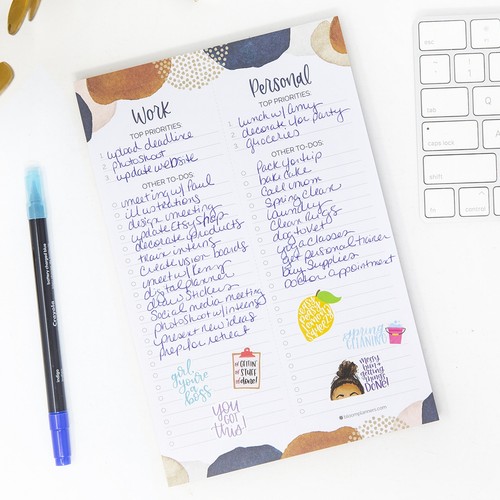 Work
TOP PRIORITIES:
1. upload deadline
2. photoshoot
3. update website
OTHER TO-DO:
meeting w/ Paul
illustrations
design meeting
update Etsy shop
decorate products
train interns
create vision boards
meet w/ Kenny
digital planner
draw stickers
social media meeting
photoshoot w/ interns
present new ideas
prep for retreat
girl,
you're
a
boss
#GETTIN'
STUFF
#DONE!
YOU
GOT
this!
Personal
TOP PRIORITIES:
1. lunch w/ Amy
2. decorate for party
3. groceries
OTHER TO-DO:
pack for trip
bake cake
call mom
spring clean
laundry
clean rugs
dog to vet
yoga classes
get personal trainer
buy supplies
doctor appointment
spring
CLEANING
Messy
bun &
getting
things
DONE!
Crayola
indigo
esc
caps lock
shift
control